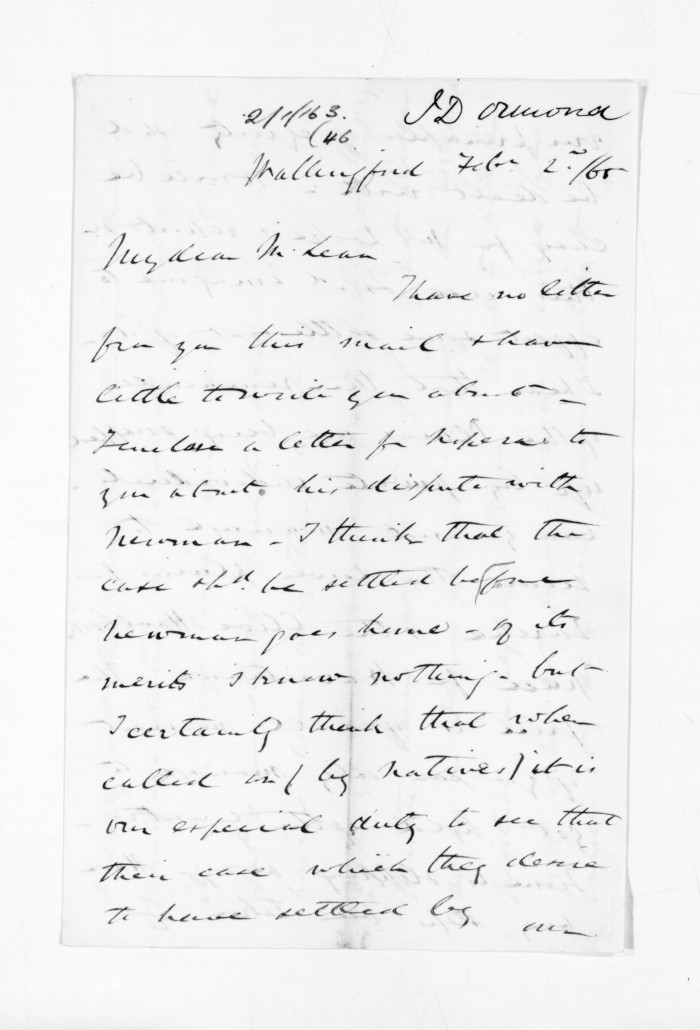 2/1/63. J D Ormond
(46
Wallingford Feby 2nd/65
My dear McLean
I have no letter
from you this mail & have
little to write you about –
I enclose a letter for to
you about his dispute with
Newman – I think that the
case shd. be settled before
Newman goes home – of its
merits I know nothing – but
I certainly think that when
called on (by Natives) it is
our especial duty to see that
their case which they desire
to have settled by
our